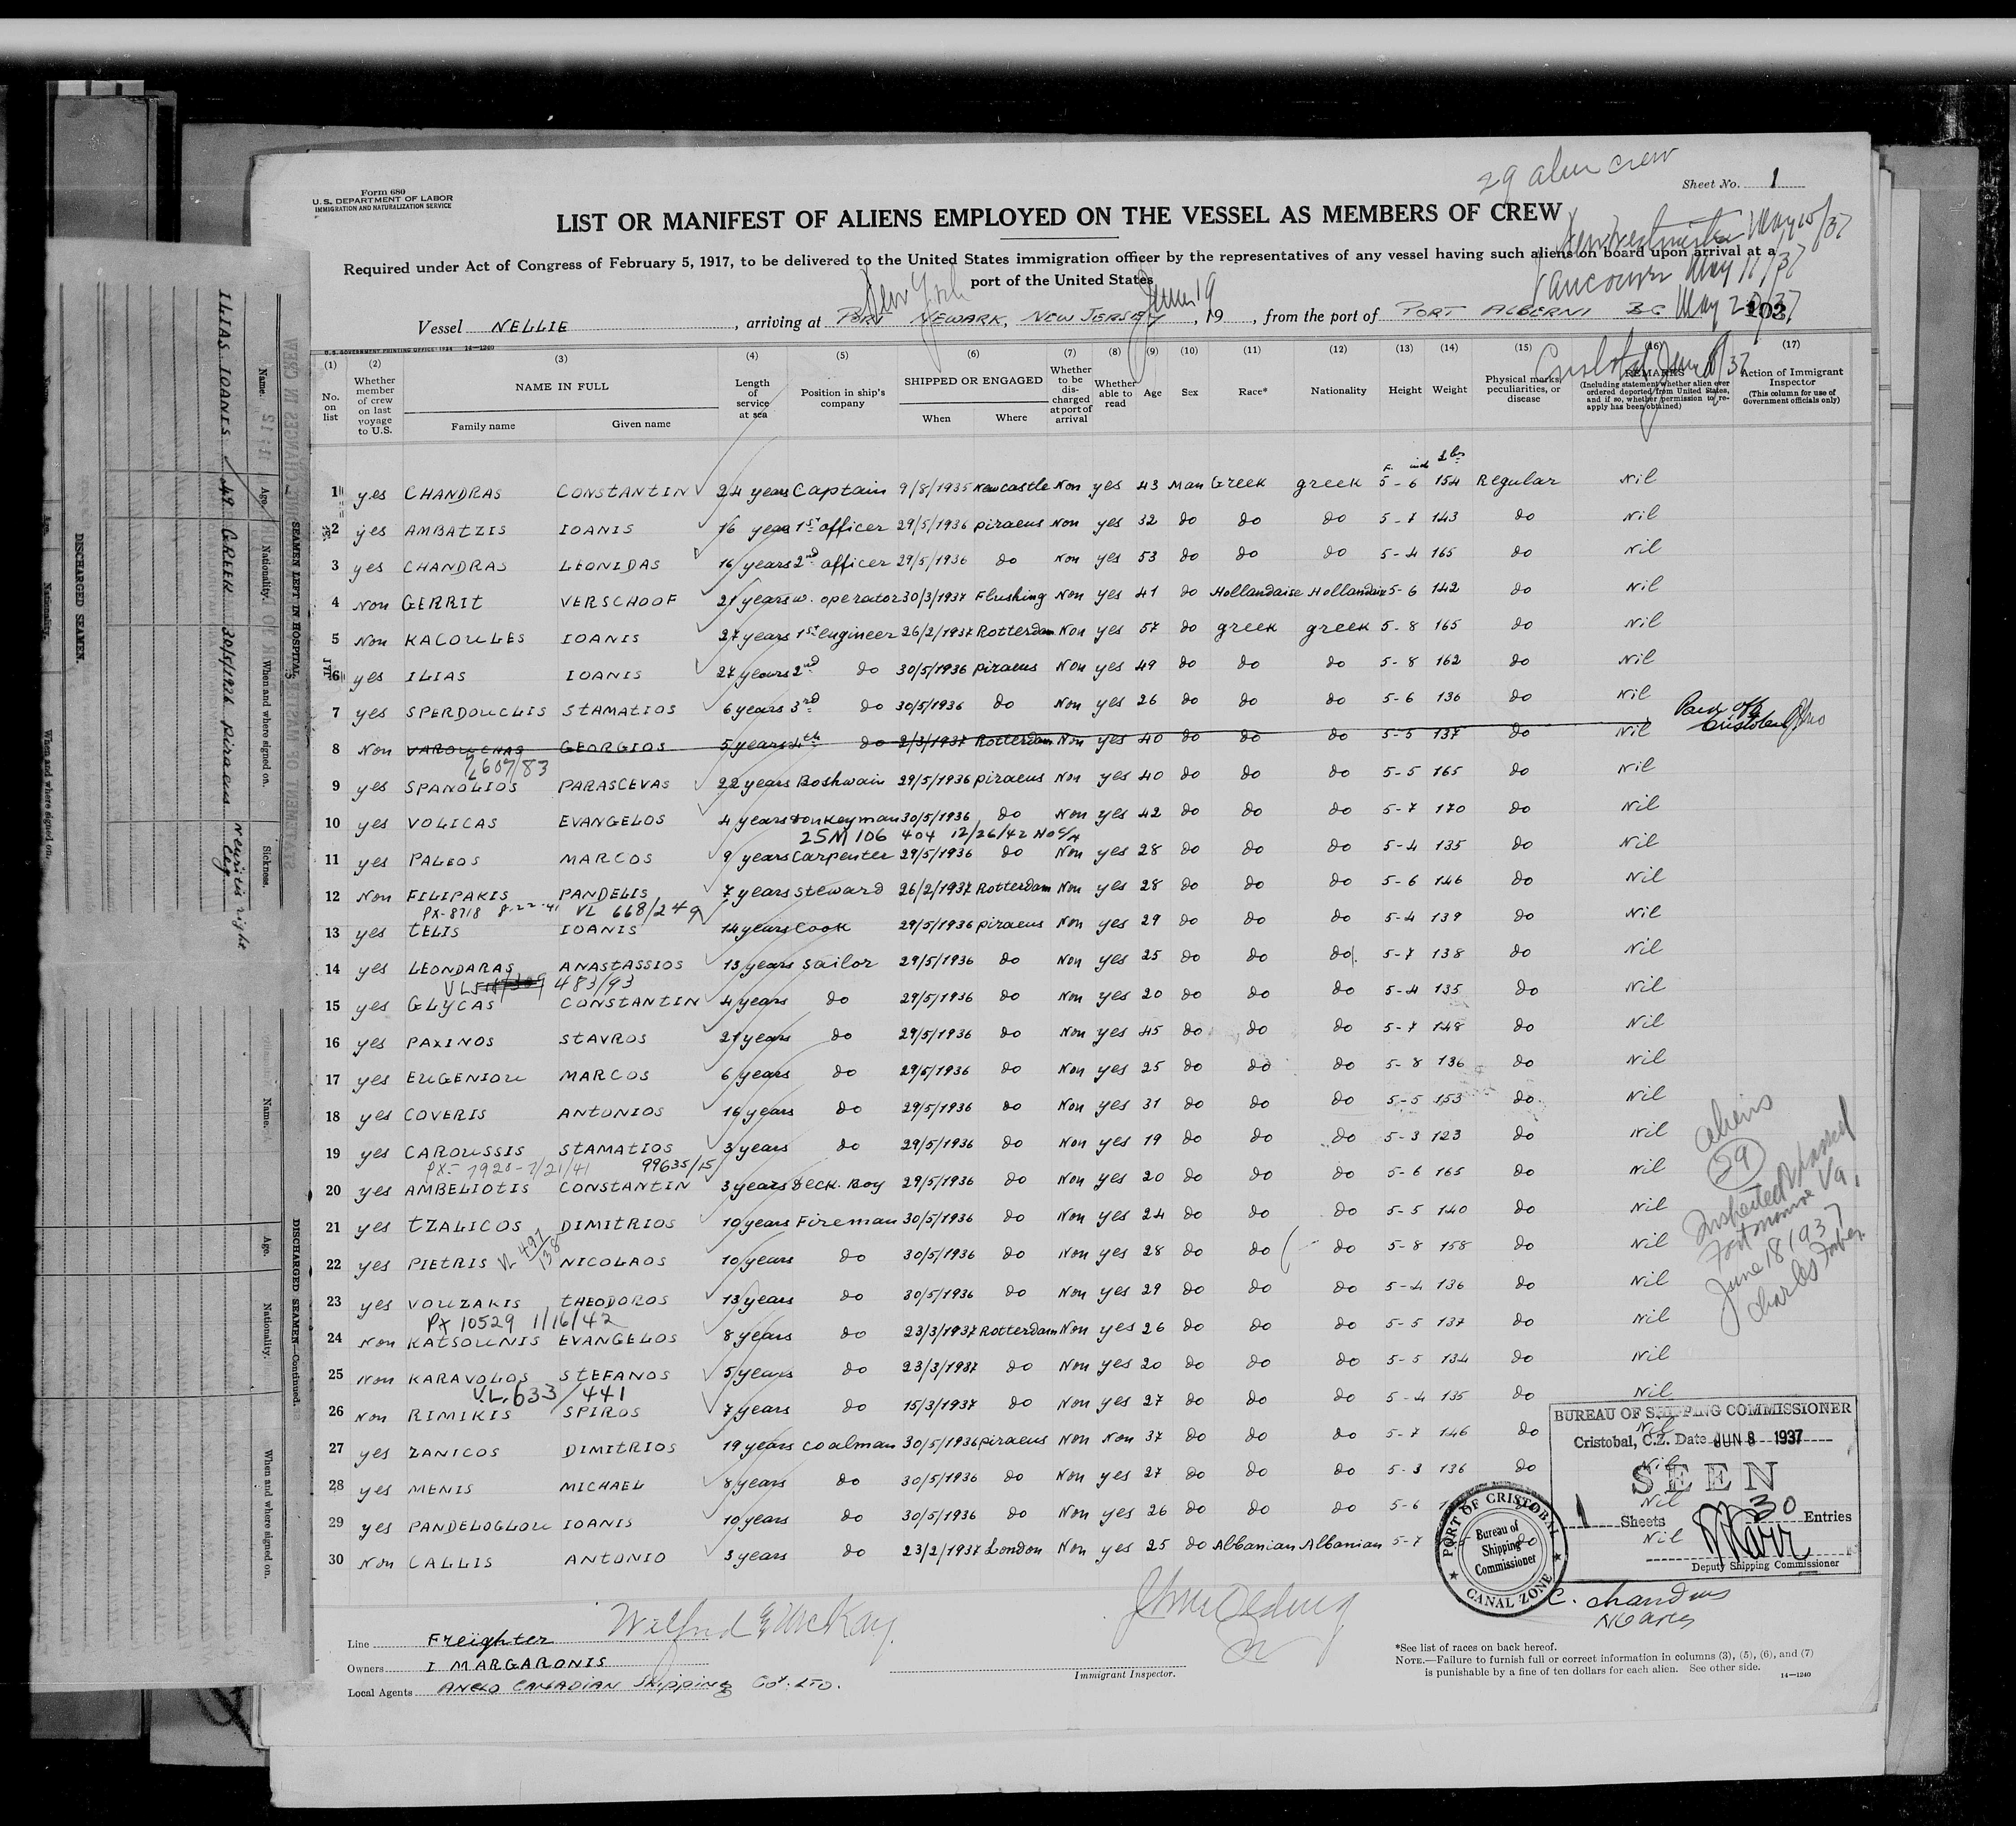 29 alien crew
Form 680
U. S. DEPARTMENT OF LABOR
IMMIGRATION AND NATURALIZATION SERVICE
Sheet No. 1
LIST OR MANIFEST OF ALIENS EMPLOYED ON THE VESSEL AS MEMBERS OF CREW
New Westminster May 15/37
Required under Act of Congress of February 5, 1917, to be delivered to the United States immigration officer by the representatives of any vessel having such aliens on board upon arrival at a
port of the United States
Vancouver May 17/37
New York June 19
Vessel NELLIE, arriving at PORT NEWARK, NEW JERSEY, 19, from the port of PORT ALBERNI BC May 20/37 193
U. S. GOVERNMENT PRINTING OFFICE: 1934 14—1240
Cristobal June 8/37
(1) (2) (3) (4) (5) (6) (7) (8) (9) (10) (11) (12) (13) (14) (15) (16) (17)
No. on list
Whether member of crew on last voyage to U.S.
NAME IN FULL
Family name Given name
Length of service at sea
Position in ship's company
SHIPPED OR ENGAGED
When Where
Whether to be discharged at port of arrival
Whether able to read
Age
Sex
Race*
Nationality
Height
Weight
Physical marks, peculiarities, or disease
REMARKS
(Including statement whether alien ever ordered deported from United States, and if so, whether permission to reapply has been obtained)
Action of Immigrant Inspector
(This column for use of Government officials only)
F. inch Lbs
1 yes CHANDRAS CONSTANTIN 24 years Captain 9/8/1935 Newcastle Non yes 43 Man Greek greek 5-6 154 Regular Nil
2 yes AMBATZIS IOANIS 16 years 1st officer 29/5/1936 piraeus Non yes 32 do do do 5-7 143 do Nil
3 yes CHANDRAS LEONIDAS 16 years 2nd officer 29/5/1936 do Non yes 53 do do do 5-4 165 do Nil
4 Non GERRIT VERSCHOOF 21 years w. operator 30/3/1937 Flushing Non yes 41 do Hollandaise Hollandaise 5-6 142 do Nil
5 Non KACOULES IOANIS 27 years 1st engineer 26/2/1937 Rotterdam Non yes 57 do greek greek 5-8 165 do Nil
6 yes ILIAS IOANIS 27 years 2nd do 30/5/1936 piraeus Non yes 49 do do do 5-8 162 do Nil
7 yes SPERDOUCLIS STAMATIOS 6 years 3rd do 30/5/1936 do Non yes 26 do do do 5-6 136 do Nil
Paid off Cristobal
8 Non VAROUCHAS GEORGIOS 5 years 4th do 2/3/1937 Rotterdam Non yes 40 do do do 5-5 137 do Nil
607/83
9 yes SPANOLIOS PARASCEVAS 22 years Boshwain 29/5/1936 piraeus Non yes 40 do do do 5-5 165 do Nil
10 yes VOLICAS EVANGELOS 4 years Donkeyman 30/5/1936 do Non yes 42 do do do 5-7 170 do Nil
25M106 404 12/26/42
11 yes PALEOS MARCOS 9 years Carpenter 29/5/1936 do Non yes 28 do do do 5-4 135 do Nil
12 Non FILIPAKIS PANDELIS 7 years steward 26/2/1937 Rotterdam Non yes 28 do do do 5-6 146 do Nil
PX-8718 8-22-41 VL 668/249
13 yes TELIS IOANIS 14 years Cook 29/5/1936 piraeus Non yes 29 do do do 5-4 139 do Nil
14 yes LEONDARAS ANASTASSIOS 13 years sailor 29/5/1936 do Non yes 25 do do do 5-7 138 do Nil
VL 483/93
15 yes GLYCAS CONSTANTIN 4 years do 29/5/1936 do Non yes 20 do do do 5-4 135 do Nil
16 yes PAXINOS STAVROS 21 years do 29/5/1936 do Non yes 45 do do do 5-7 148 do Nil
17 yes EUGENIOU MARCOS 6 years do 29/5/1936 do Non yes 25 do do do 5-8 136 do Nil
18 yes COVERIS ANTONIOS 16 years do 29/5/1936 do Non yes 31 do do do 5-5 153 do Nil
19 yes CAROUSSIS STAMATIOS 3 years do 29/5/1936 do Non yes 19 do do do 5-3 123 do Nil
PX-7928-7/21/41 99635/15
20 yes AMBELIOTIS CONSTANTIN 3 years Deck. Boy 29/5/1936 do Non yes 20 do do do 5-6 165 do Nil
21 yes TZALICOS DIMITRIOS 10 years Fireman 30/5/1936 do Non yes 24 do do do 5-5 140 do Nil
22 yes PIETRIS VL 497/138 NICOLAOS 10 years do 30/5/1936 do Non yes 28 do do do 5-8 158 do Nil
23 yes VOUZAKIS THEODOROS 13 years do 30/5/1936 do Non yes 29 do do do 5-4 136 do Nil
PX 10529 1/16/42
24 Non KATSOUNIS EVANGELOS 8 years do 23/3/1937 Rotterdam Non yes 26 do do do 5-5 137 do Nil
25 Non KARAVOLOS STEFANOS 5 years do 23/3/1937 do Non yes 20 do do do 5-5 134 do Nil
VL. 633/441
26 Non RIMIKIS SPIROS 7 years do 15/3/1937 do Non yes 27 do do do 5-4 135 do Nil
27 yes ZANICOS DIMITRIOS 19 years coalman 30/5/1936 piraeus Non Non 37 do do do 5-7 146 do Nil
28 yes MENIS MICHAEL 8 years do 30/5/1936 do Non yes 27 do do do 5-3 136 do Nil
29 yes PANDELOGLOU IOANIS 10 years do 30/5/1936 do Non yes 26 do do do 5-6 do Nil
30 Non CALLIS ANTONIO 3 years do 23/2/1937 London Non yes 25 do Albanian Albanian 5-7 do Nil
aliens
29
Inspected & passed
Fort Monroe Va.
June 18 1937
Charles
BUREAU OF SHIPPING COMMISSIONER
Cristobal, C.Z. Date JUN 8 1937
SEEN
1 Sheets 30 Entries
Deputy Shipping Commissioner
PORT OF CRISTOBAL
Bureau of Shipping Commissioner
CANAL ZONE
C. Chandras
Line Freighter
Wilfred McKay
Owners I MARGARONIS
Local Agents ANGLO CANADIAN Shipping Coy. LTD.
Immigrant Inspector.
*See list of races on back hereof.
NOTE.—Failure to furnish full or correct information in columns (3), (5), (6), and (7)
is punishable by a fine of ten dollars for each alien. See other side. 14—1240
SEAMEN LEFT IN HOSPITAL
Name. Age. Nationality. When and where signed on. Sickness.
ILIAS IOANIS 49 GREEK 30/5/1936 piraeus Neuritis right leg
DISCHARGED SEAMEN.
Name. Age. Nationality. When and where signed on.
DISCHARGED SEAMEN—Continued.
Name. Age. Nationality. When and where signed on.